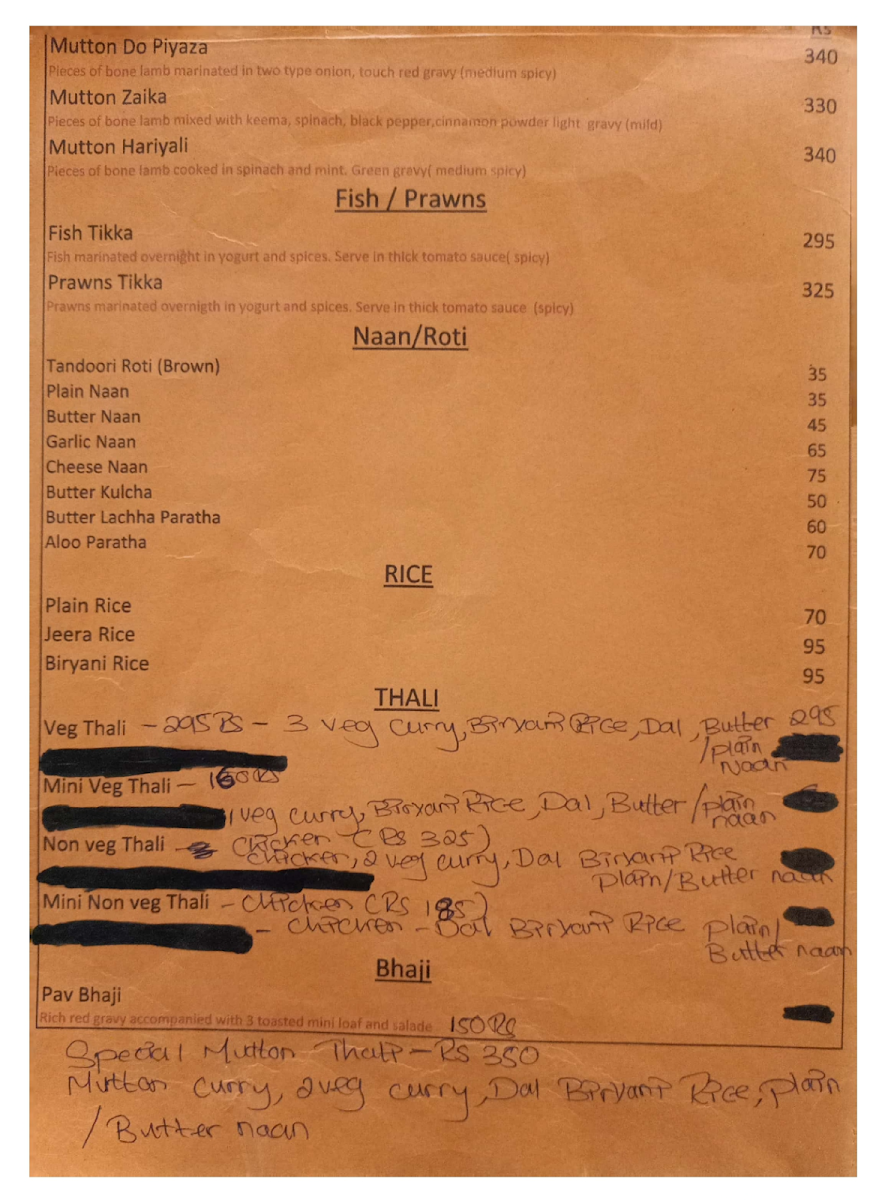 Rs
Mutton Do Piyaza 340
Pieces of bone lamb marinated in two type onion, touch red gravy (medium spicy)
Mutton Zaika 330
Pieces of bone lamb mixed with keema, spinach, black pepper,cinnamon powder light gravy (mild)
Mutton Hariyali 340
Pieces of bone lamb cooked in spinach and mint. Green gravy( medium spicy)
Fish / Prawns
Fish Tikka 295
Fish marinated overnight in yogurt and spices. Serve in thick tomato sauce( spicy)
Prawns Tikka 325
Prawns marinated overnigth in yogurt and spices. Serve in thick tomato sauce (spicy)
Naan/Roti
Tandoori Roti (Brown) 35
Plain Naan 35
Butter Naan 45
Garlic Naan 65
Cheese Naan 75
Butter Kulcha 50
Butter Lachha Paratha 60
Aloo Paratha 70
RICE
Plain Rice 70
Jeera Rice 95
Biryani Rice 95
THALI
Veg Thali - 295 RS - 3 veg curry, Biryani Rice, Dal, Butter 295
/plain
Naan
Mini Veg Thali - 160 RS
1 veg curry, Biryani Rice, Dal, Butter /plain
naan
Non veg Thali - Chicken (RS 325)
Chicken, 2 veg curry, Dal Biryani Rice
Plain/Butter naan
Mini Non veg Thali - Chicken (RS 185)
- Chicken - Dal Biryani Rice plain/
Butter naan
Bhaji
Pav Bhaji
Rich red gravy accompanied with 3 toasted mini loaf and salade 150 RS
Special Mutton Thali - RS 350
Mutton curry, 2 veg curry, Dal Biryani Rice, plain
/ Butter naan